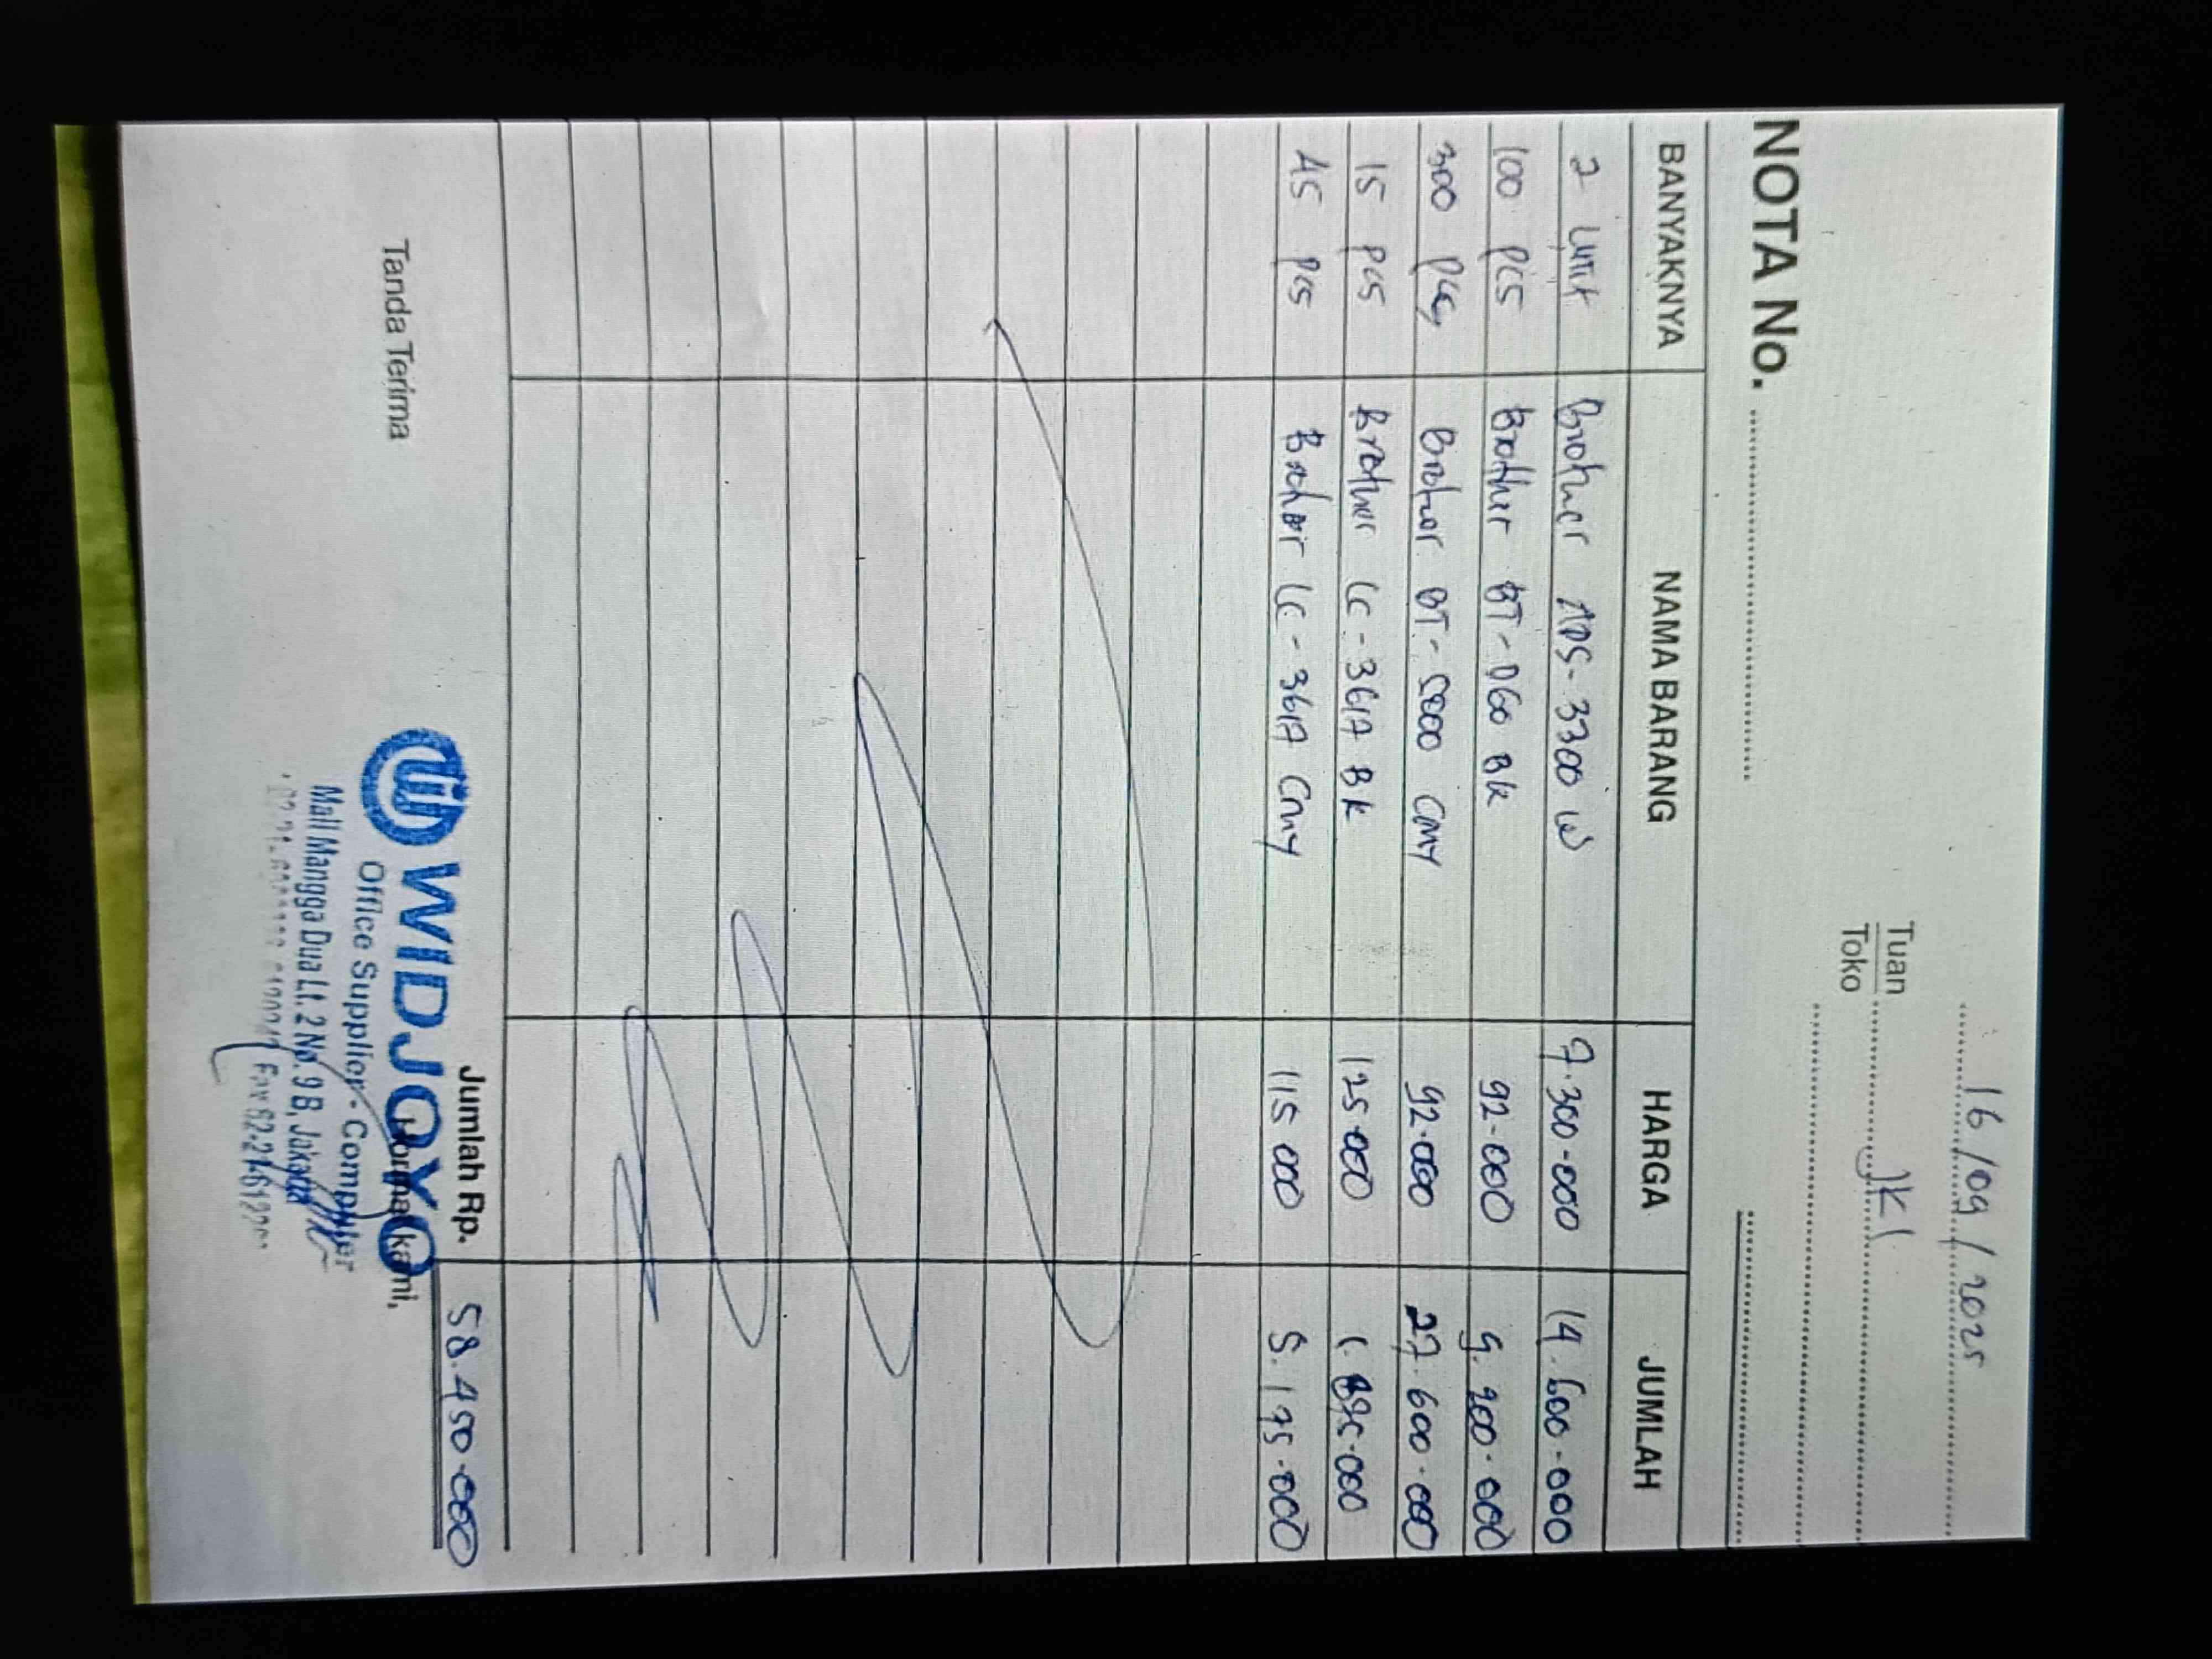 16/09/2025
Tuan JKI
Toko
NOTA No.
BANYAKNYA NAMA BARANG HARGA JUMLAH
2 unit Brother ADS-3300 W 7.300.000 14.600.000
100 pcs Brother BT-D60 BK 92.000 9.200.000
300 pcs Brother BT-5000 CMY 92.000 27.600.000
15 pcs Brother LC-3617 BK 125.000 1.875.000
45 pcs Brother LC-3617 CMY 115.000 5.175.000
Jumlah Rp. 58.450.000
Tanda Terima Hormat kami,
WIDJOYO
Office Supplier - Computer
Mall Mangga Dua Lt. 2 No. 9 B, Jakarta